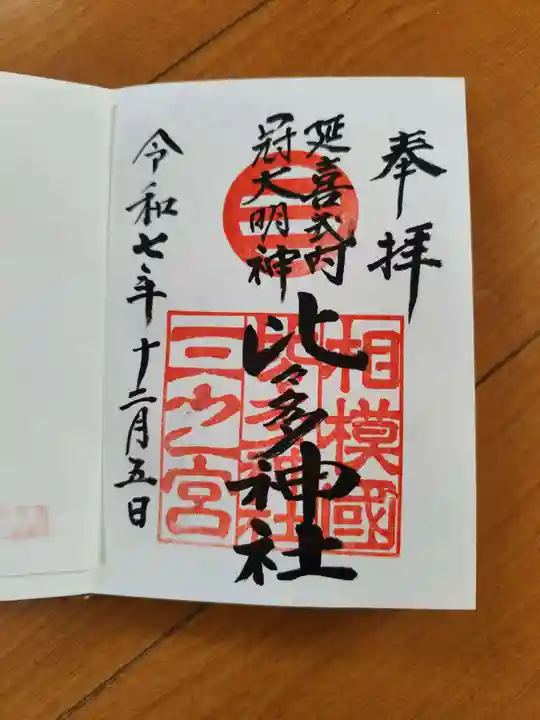 奉拝
延喜式内
冠大明神
三
比々多神社
相模國
三之宮
令和七年十二月五日